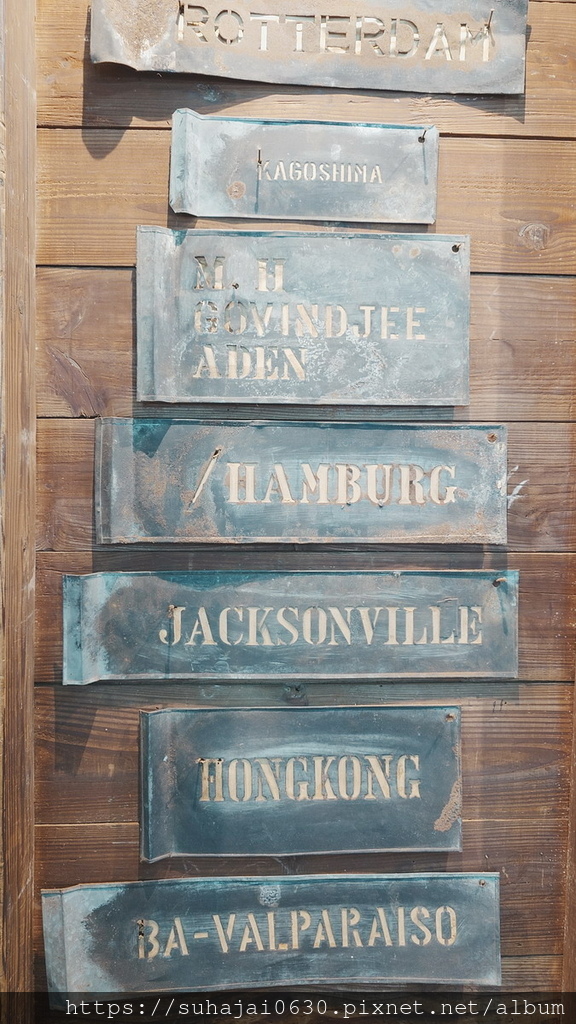 ROTTERDAM
KAGOSHIMA
M. H
GOVINDJEE
ADEN
/HAMBURG
JACKSONVILLE
HONGKONG
BA-VALPARAISO
https://suhajai0630.pixnet.net/album